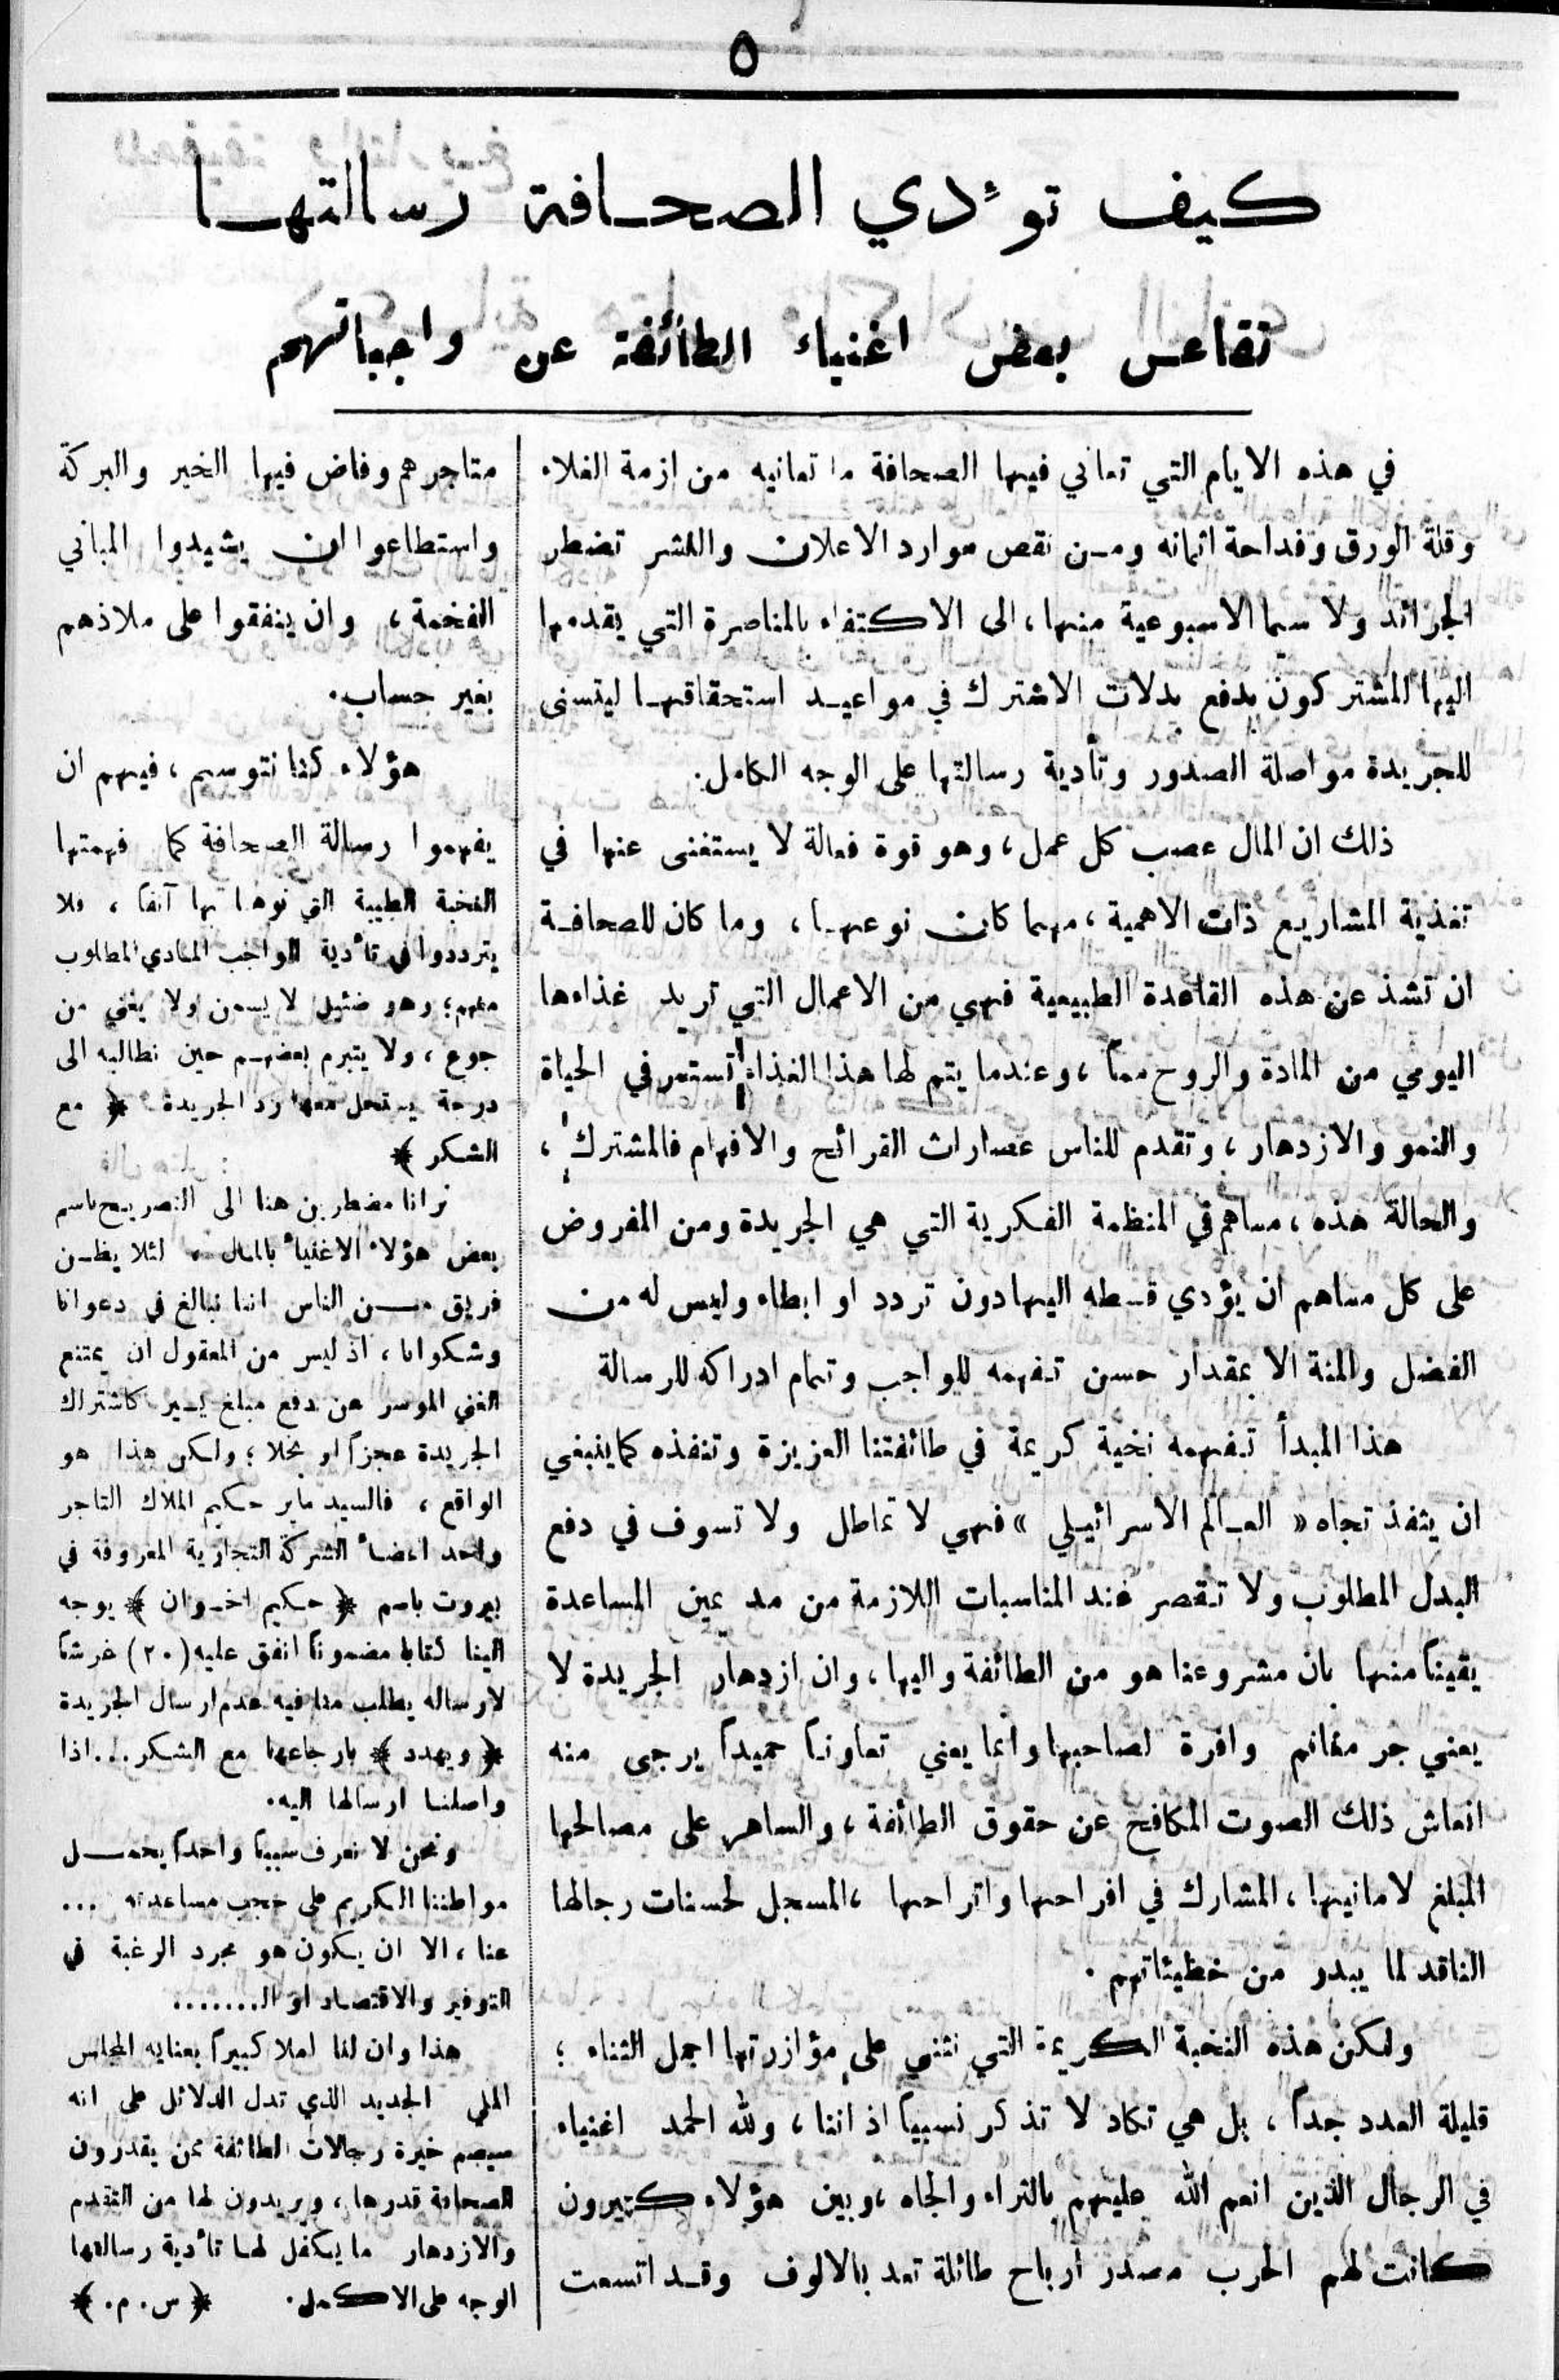 ٥
كيف تؤدي الصحافة رسالتها
تقاعس بعض اغنياء الطائفة عن واجباتهم
في هذه الايام التي تعاني فيها الصحافة ما تعانيه من ازمة الغلاء
وقلة الورق وفداحة اثمانه ومن نقص موارد الاعلان والنشر تضطر
الجرائد ولا سيما الاسبوعية منها، الى الاكتفاء بالمناصرة التي يقدمها
اليها المشتركون بدفع بدلات الاشترك في مواعيد استحقاقها ليتسنى
للجريدة مواصلة الصدور وتأدية رسالتها على الوجه الكامل.
ذلك ان المال عصب كل عمل، وهو قوة فعالة لا يستغنى عنها في
تغذية المشاريع ذات الاهمية، مهما كان نوعها، وما كان للصحافة
ان تشذ عن هذه القاعدة الطبيعية فهي من الاعمال التي تريد غذاءها
اليومي من المادة والروح معاً، وعندما يتم لها هذا الغذاء تستمر في الحياة
والنمو والازدهار، وتقدم للناس عصارات القرائح والافهام فالمشترك،
والحالة هذه، مساهم في المنظمة الفكرية التي هي الجريدة ومن المفروض
على كل مساهم ان يؤدي قسطه اليها دون تردد او ابطاء وليس له من
الفضل والمنة الا بمقدار حسن تفهمه للواجب وتمام ادراكه للرسالة
هذا المبدأ تفهمه نخبة كريمة في طائفتنا العزيزة وتنفذه كما ينبغي
ان ينفذ تجاه « العالم الاسرائيلي » فهي لا تماطل ولا تسوف في دفع
البدل المطلوب ولا تقصر عند المناسبات اللازمة من مد يمين المساعدة
يقيناً منها بان مشروعنا هو من الطائفة واليها، وان ازدهار الجريدة لا
يعني جر مغانم وافرة لصاحبها وانما يعني تعاوناً حميداً يرجى منه
انعاش ذلك الصوت المكافح عن حقوق الطائفة، والساهر على مصالحها
المبلغ لامانيها، المشارك في افراحها واتراحها، المسجل لحسنات رجالها
الناقد لما يبدر من خطيئاتهم.
ولكن هذه النخبة الكريمة التي نثني على مؤازرتها اجمل الثناء؛
قليلة العدد جداً، بل هي تكاد لا تذكر نسبياً اذ اننا، ولله الحمد اغنياء
في الرجال الذين انعم الله عليهم بالثراء والجاه، وبين هؤلاء كثيرون
كانت لهم الحرب مصدر ارباح طائلة تعد بالالوف وقد اتسعت
متاجرهم وفاض فيها الخير والبركة
واستطاعوا ان يشيدوا المباني
الفخمة، وان ينفقوا على ملاذهم
بغير حساب.
هؤلاء كنا نتوسم، فيهم ان
يفهموا رسالة الصحافة كما فهمتها
النخبة الطيبة التي نوهنا بها آنفا، فلا
يترددوا في تأدية الواجب المادي المطلوب
منهم؛ وهو ضئيل لا يسمن ولا يغني من
جوع، ولا يتبرم بعضهم حين نطالبه الى
درجة يستحل معها رد الجريدة ﴿ مع
الشكر ﴾
نرانا مضطرين هنا الى التصريح باسم
بعض هؤلاء الاغنياء بالمال، لئلا يظن
فريق من الناس اننا نبالغ في دعوانا
وشكوانا، اذ ليس من المعقول ان يمتنع
الغني الموسر عن دفع مبلغ يسير كاشتراك
الجريدة عجزاً او بخلا؛ ولكن هذا هو
الواقع، فالسيد ماير حكيم الملاك التاجر
واحد اعضاء الشركة التجارية المعروفة في
بيروت باسم ﴿ حكيم اخوان ﴾ يوجه
الينا كتابا مضمونا انفق عليه (٢٠) غرشا
لارساله يطلب منا فيه عدم ارسال الجريدة
﴿ ويهدد ﴾ بارجاعها مع الشكر... اذا
واصلنا ارسالها اليه.
ونحن لا نعرف سببا واحداً يحمل
مواطننا الكريم على حجب مساعدته ...
عنا، الا ان يكون هو مجرد الرغبة في
التوفير والاقتصاد او الـ.......
هذا وان لنا املا كبيراً بعناية المجلس
الملي الجديد الذي تدل الدلائل على انه
سيضم خيرة رجالات الطائفة ممن يقدرون
الصحافة قدرها، ويريدون لها من التقدم
والازدهار ما يكفل لها تأدية رسالتها
الوجه على الاكمل. ﴿ س. م. ﴾